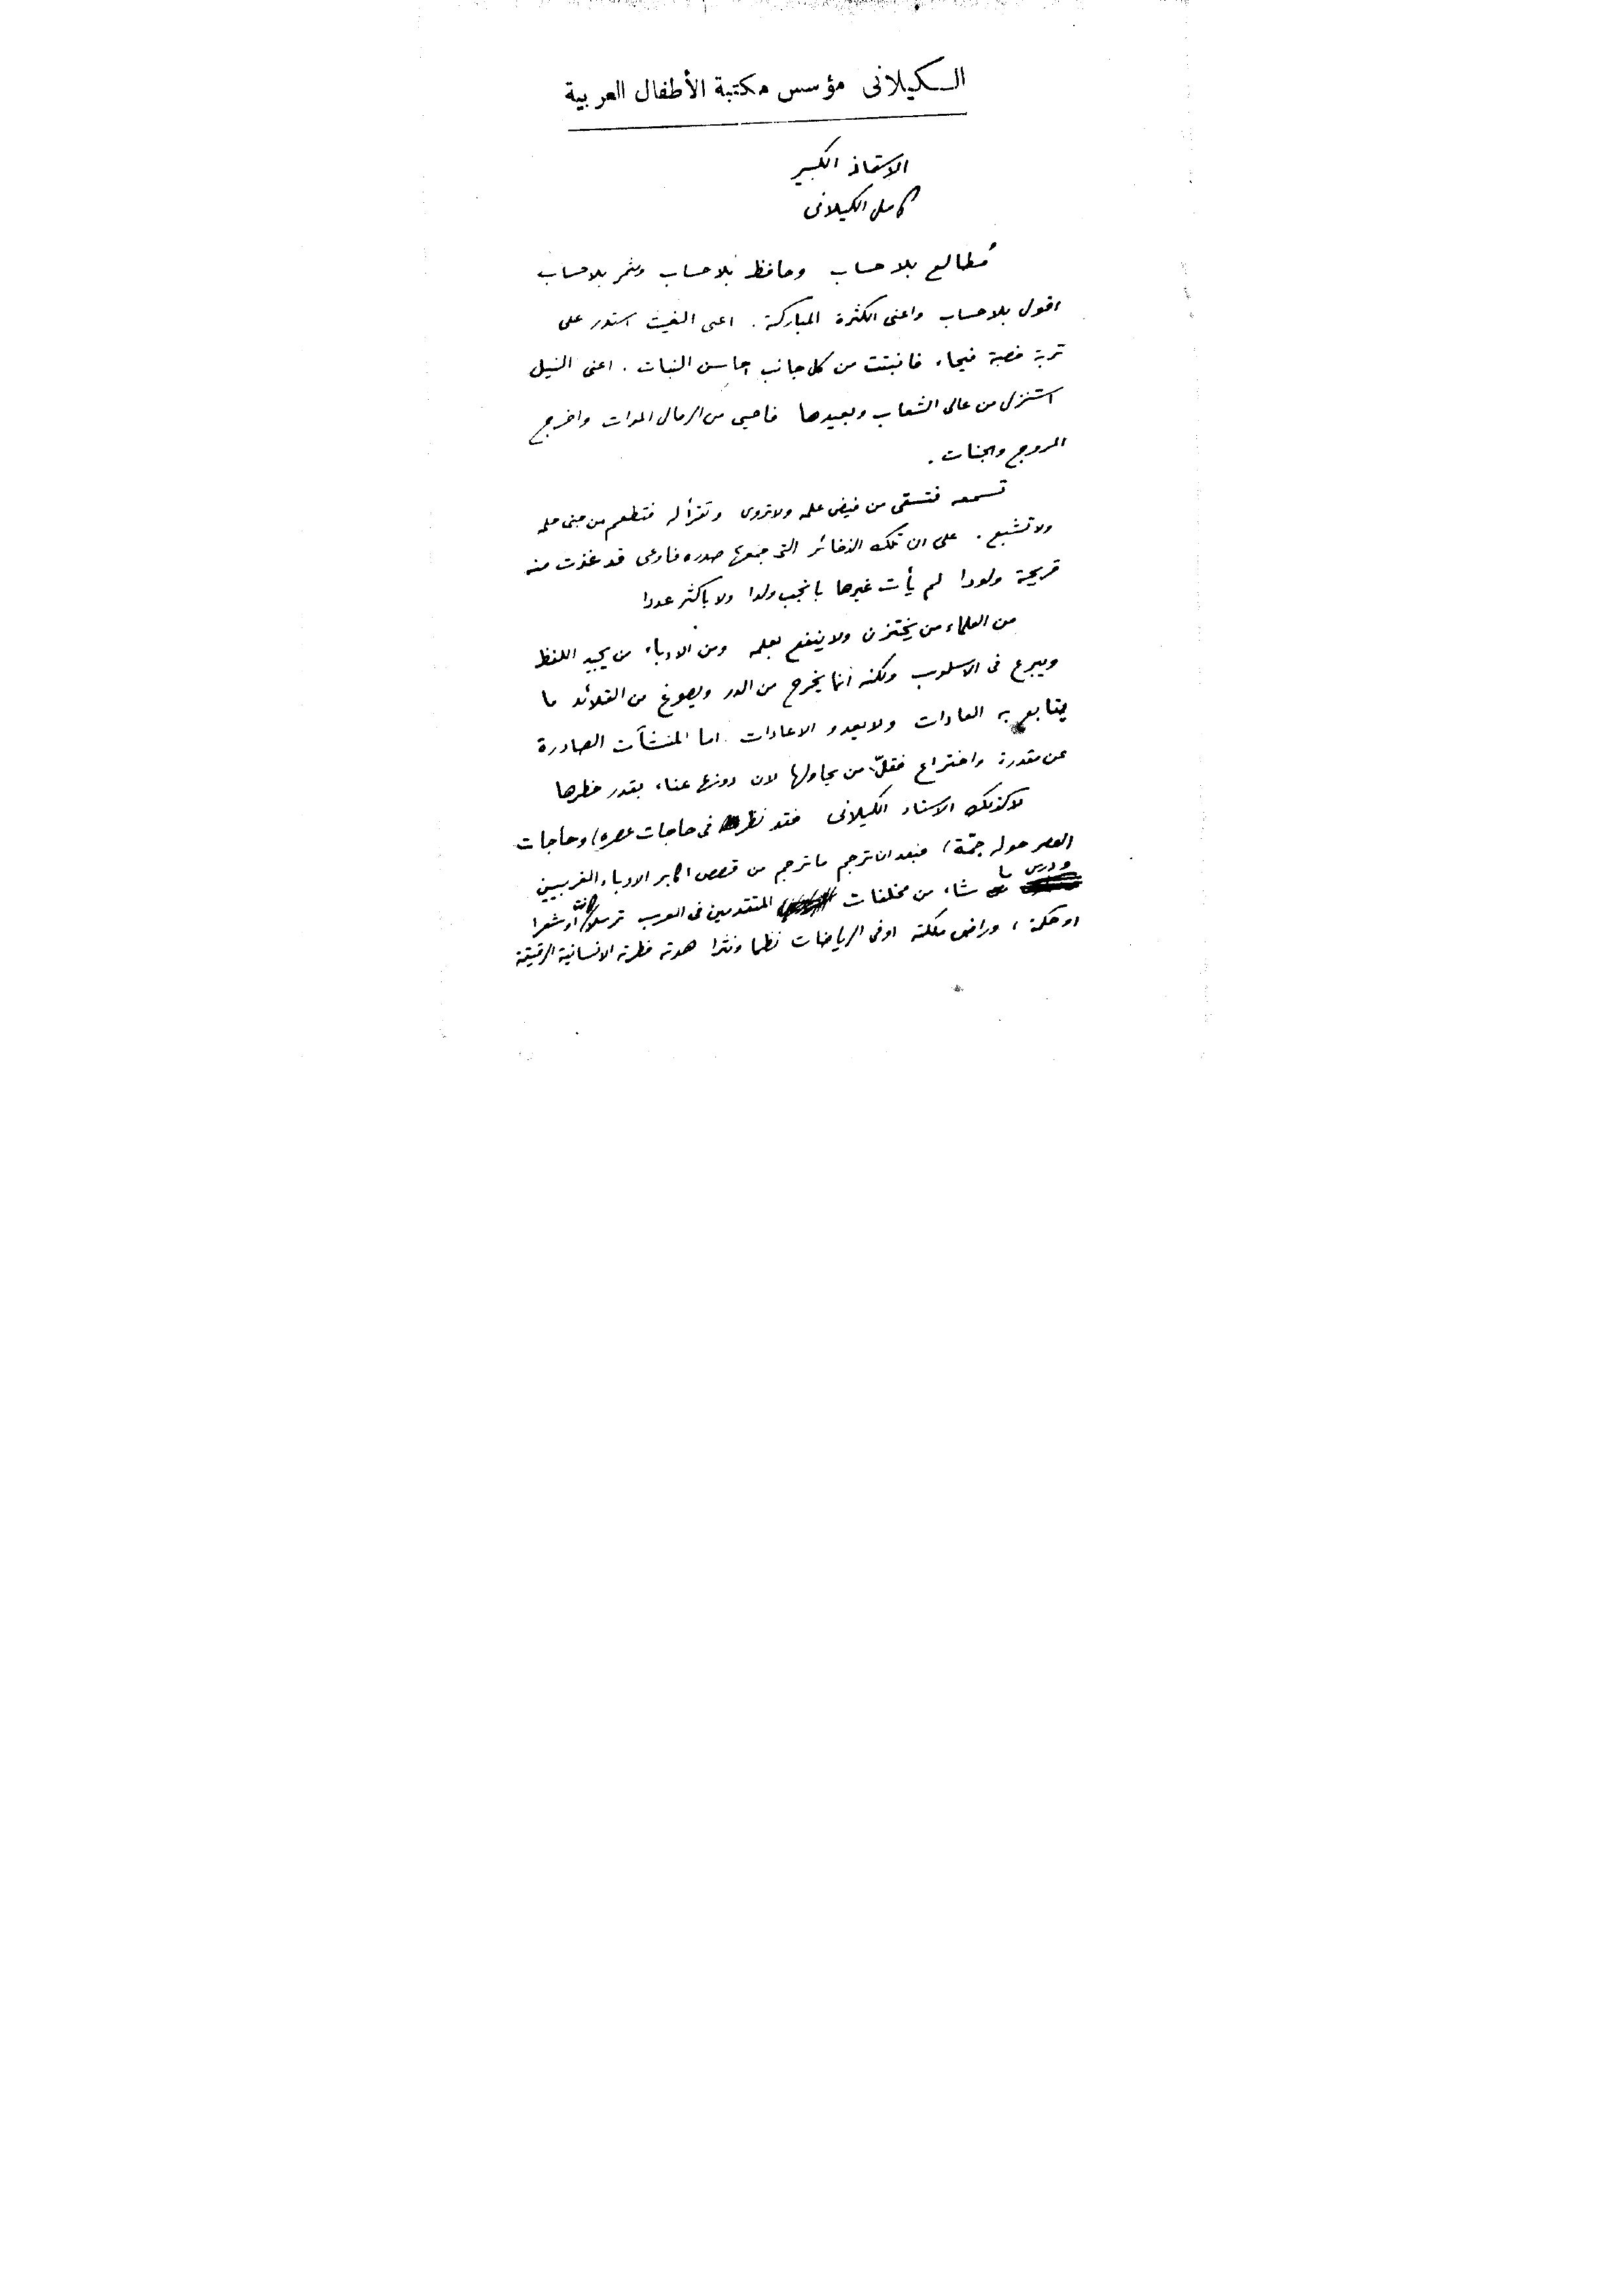 الكيلانى مؤسس مكتبة الأطفال العربية
الاستاذ الكبير
كامل الكيلانى
مُطالع بلا حساب وحافظ بلا حساب ومثمر بلا حساب
اقول بلا حساب واعنى الكثرة المباركة. اعنى الغيث استدر على
تربة خصبة فيحاء فانبتت من كل جانب احاسن النبات. اعنى النيل
استنزل من عالى الشعاب وبعيدها فاحيى من الرمال الموات واخرج
المروج والجنات.
تسمعه فتسقى من فيض علمه ولا تروى وتقرأ له فتطعم من جنى حلمه
ولا تشبع. على ان تلك الذخائر التى جمعها صدره فاوعى قد غذت منه
قريحة ولودا لم يأت غيرها بانجب ولدا ولا باكثر عددا
من العلماء من يختزن ولا ينفع بعلمه ومن الادباء من يجيد اللفظ
ويبرع فى الاسلوب ولكنه انما يخرج من الدر ويصوغ من القلائد ما
يتابع به العادات ولا يعدو الاعادات. اما المنشآت الصادرة
عن مقدرة واختراع فقلّ من يحاولها لان دونها عناء بقدر خطرها
لا كذلك الاستاذ الكيلانى فقد نظر فى حاجات عصره، وحاجات
العصر حوله جمّة، فبعد ان ترجم ما ترجم من قصص اكابر الادباء الغربيين
ودرس ما شاء من مخلفات المتقدمين فى العرب ترسلا كانت أو شعرا
او حكمة، وراض ملكته اوفى الرياضات نظما ونثرا هدته فطرته الانسانية الرقيقة